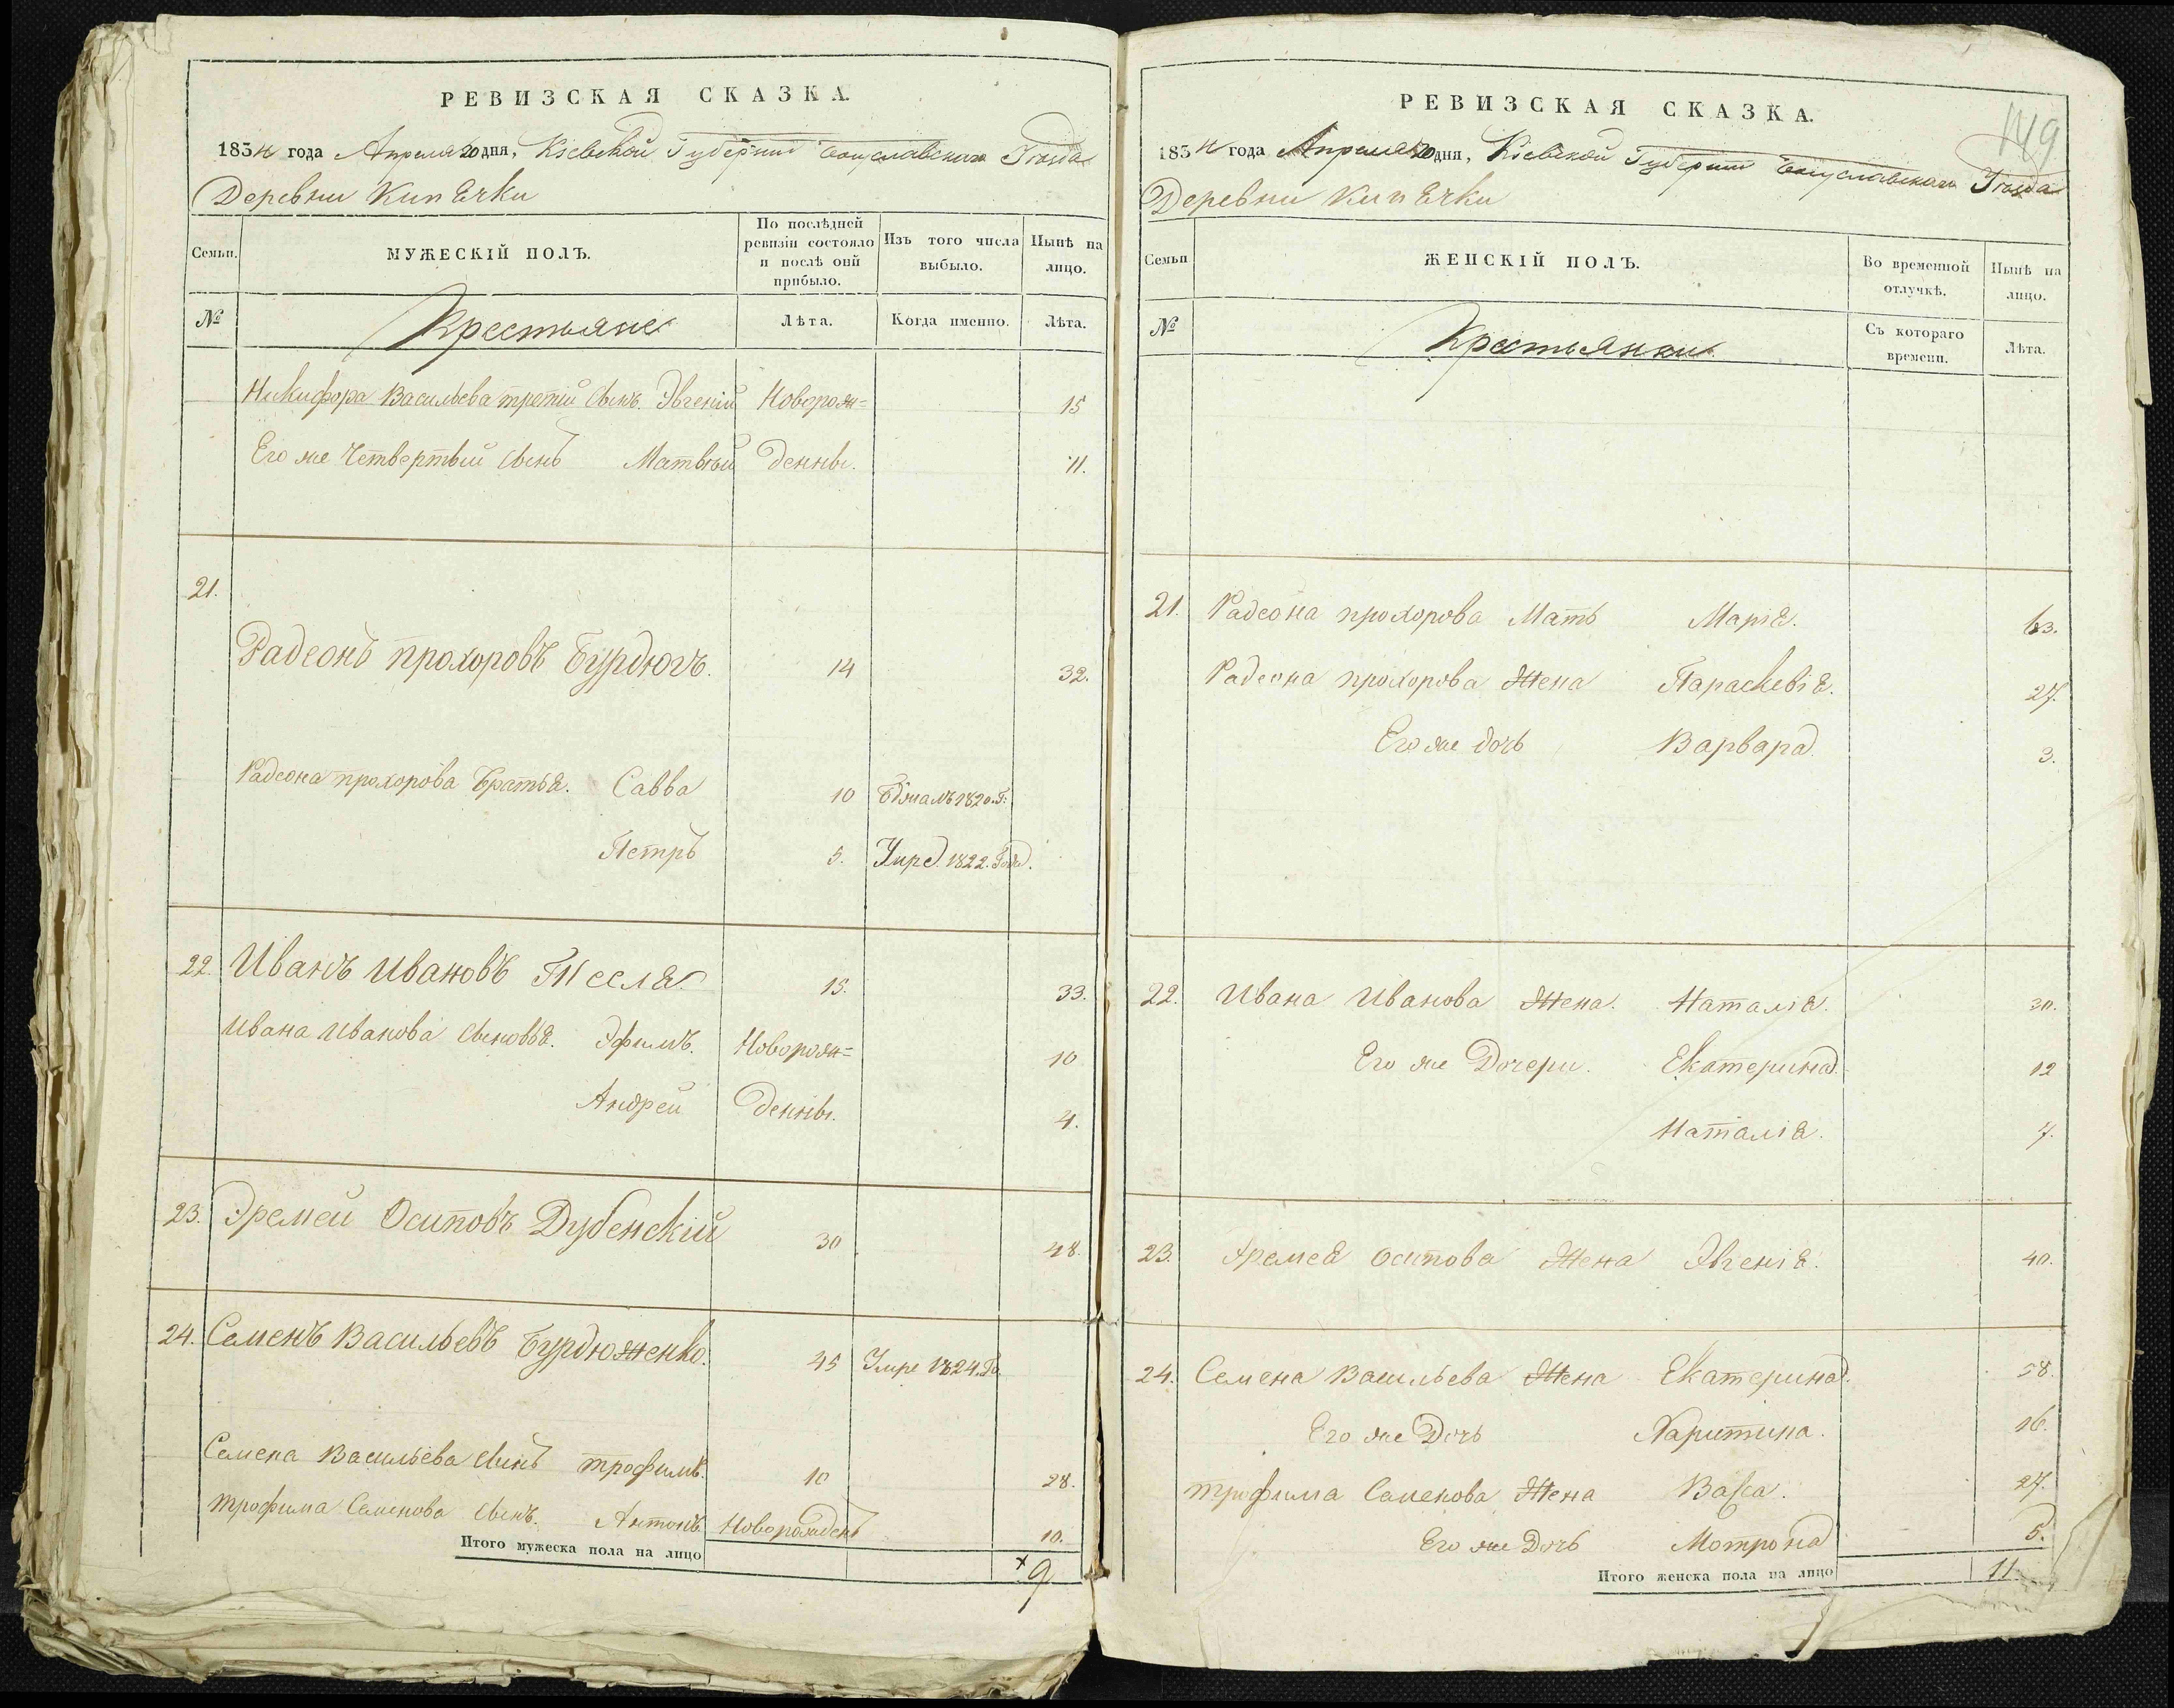 РЕВИЗСКАЯ СКАЗКА.
1834 года Апреля 20 дня, Кіевской Губерніи Богуславскаго Уѣзда
Деревни Кипячки
Семьи.
МУЖЕСКІЙ ПОЛЪ.
По послѣдней ревизіи состояло и послѣ оній прибыло.
Изъ того числа выбыло.
Нынѣ на лицо.
№
Крестьяне
Лѣта.
Когда именно.
Лѣта.
Никифора Васильева третій сынъ. Эвгеній Новорож= 15
Его же Четвертый сынъ Матвѣй денны. 11.
21.
Радеонъ прохоровъ Бурдюгъ. 14 32.
Радеона прохорова Братья. Савва 10 Бѣжалъ 1820. Г:
Петръ 5. Умре. 1822. Года.
22. Иванъ Ивановъ Тесля. 15. 33.
Ивана Иванова сыновья. Эфимъ. Новорож= 10
Андрей денны. 4.
23. Эремей Осиповъ Дубенскій 30 48.
24. Семенъ Васильевъ Бурдюженко. 45 Умре 1824. Го.
Семена Васильева сынъ трофимъ. 10 28.
трофима Семенова сынъ. Антонъ. Новорожденъ 10.
Итого мужеска пола на лицо 9
РЕВИЗСКАЯ СКАЗКА.
149
1834 года Апреля 20 дня, Кіевской Губерніи Богуславскаго Уѣзда
Деревни Кипячки
Семьи
ЖЕНСКІЙ ПОЛЪ.
Во временной отлучкѣ.
Нынѣ на лицо.
№
Крестьянки
Съ котораго времени.
Лѣта.
21. Радеона прохорова Мать Марія. 63.
Радеона прохорова Жена Параскевія. 27.
Его же дочь Варвара. 3.
22. Ивана Иванова Жена. Наталія. 30.
Его же Дочери. Екатерина. 12
Наталія. 7.
23. Эремея осипова Жена Эвгенія. 40.
24. Семена Васильева Жена Екатерина. 58.
Его же Дочь Харитина. 16.
трофима Семенова Жена Васса. 27.
Его же Дочь Мотрона 5.
Итого женска пола на лицо 11.